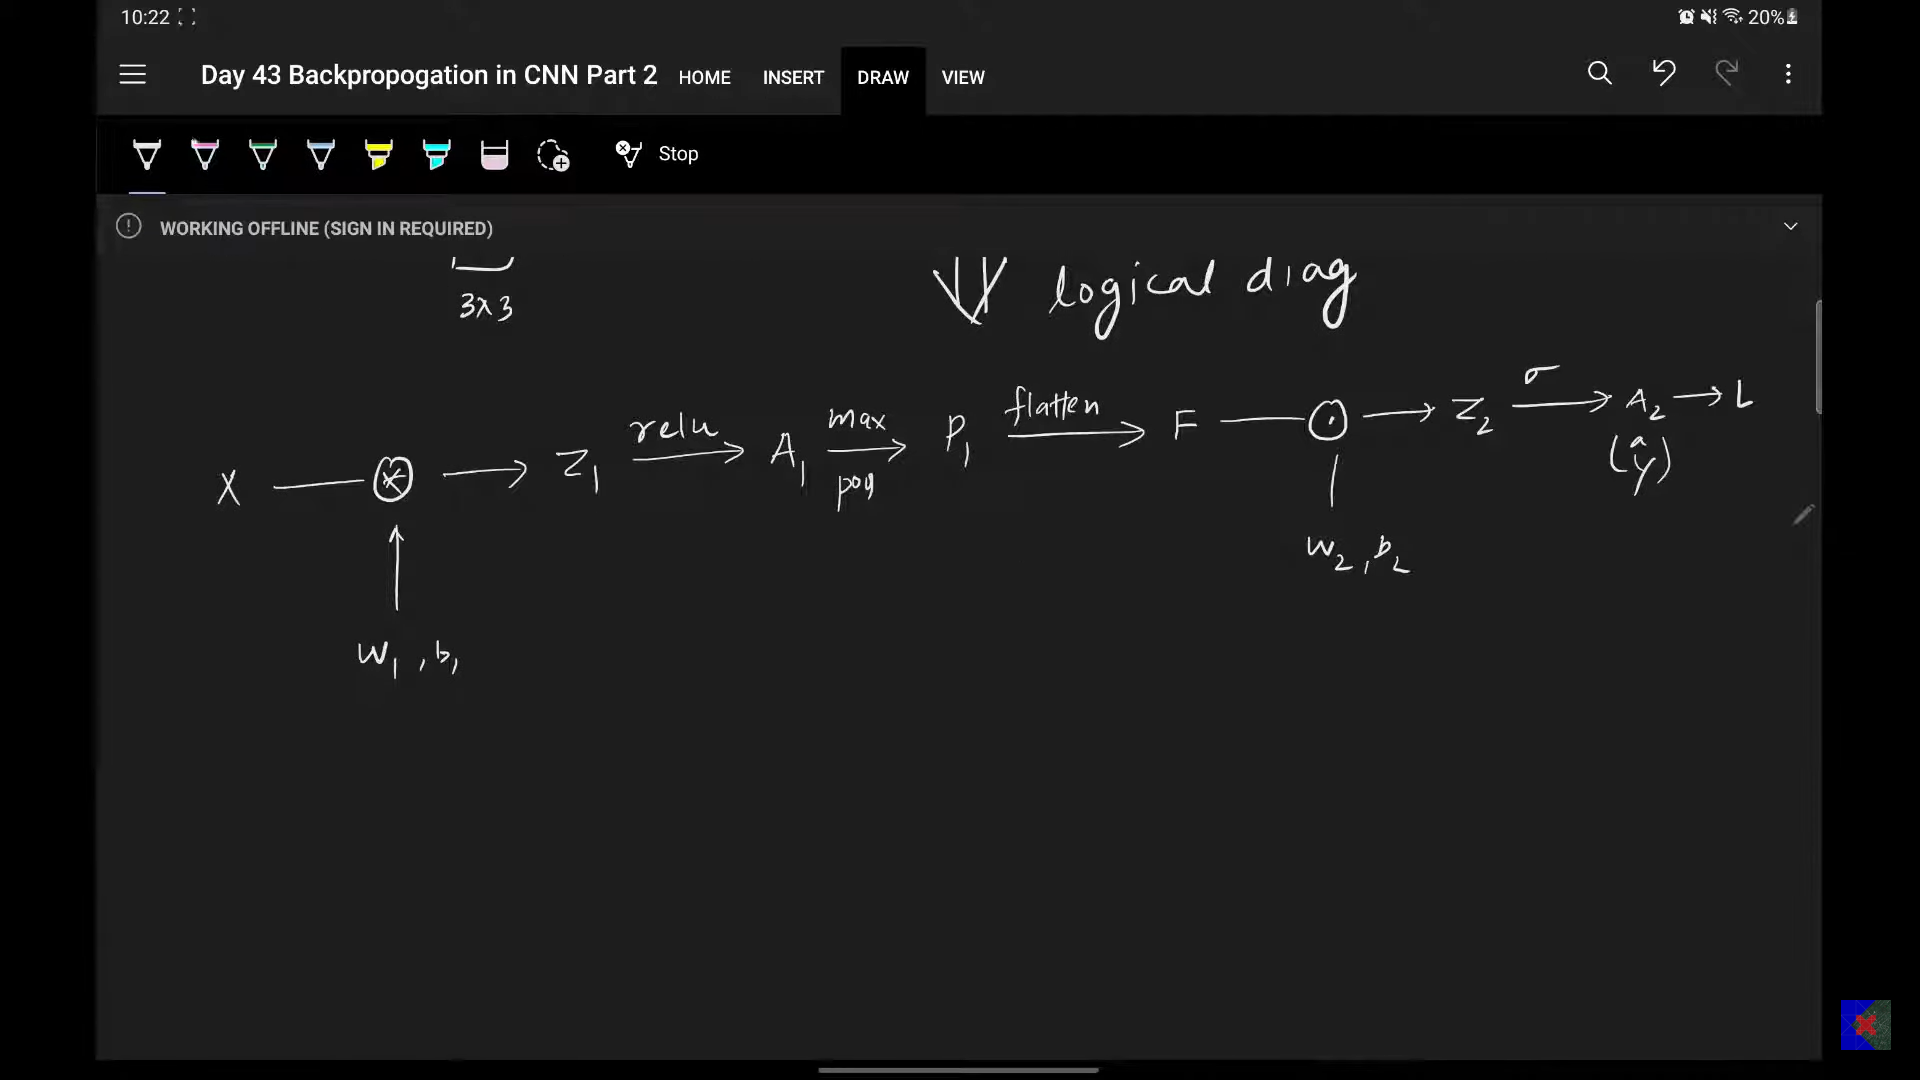 10:22 20%
Day 43 Backpropogation in CNN Part 2 HOME INSERT DRAW VIEW
Stop
WORKING OFFLINE (SIGN IN REQUIRED)
3x3
logical diag
X ⊗ → Z₁ relu A₁ max pog P₁ flatten F ⊙ → Z₂ σ A₂ → L
(ŷ)
W₂, b₂
W₁, b₁